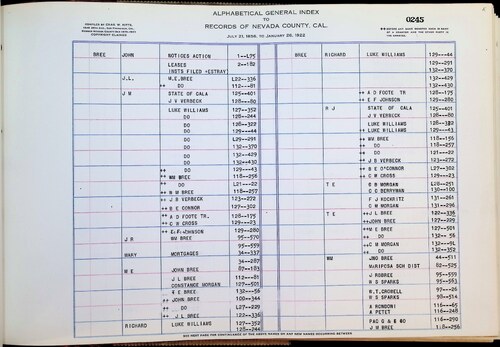 COMPILED BY CHAS. W. KITTS,
ALPHABETICAL GENERAL INDEX
TO
RECORDS OF NEVADA COUNTY, CAL.
JULY 21, 1856, TO JANUARY 20, 1922
0245
BREE JOHN NOTICES ACTION 1--475
LEASES 2--182
INSTS FILED-ESTRAY
J.L. M.E.BREE 122--336
++ DO 112---81
J M STATE OF CALA 125--401
J V VERBECK 128---80
LUKE WILLIAMS 127--352
DO 128--244
DO 128--322
DO 129---44
DO 129--291
DO 132--370
DO 132--429
DO 132--430
++ DO 129---43
++ WM BREE 118--256
++ DO 121---22
++ W M BREE 118--257
++ J B VERBECK 123--272
++ B E CONNOR 127--302
++ A D FOOTE TR. 128--175
++ C W CROSS 129---23
++ E.F.JOHNSON 129--280
J R WM BREE 95--570
95--559
MARY MORTGAGES 34--337
34--287
M E JOHN BREE 89--183
J L BREE 112---81
CONSTANCE MORGAN 127--501
B E BREE 132---56
++ JOHN BREE 100--344
++ DO 127--229
++ J.L BREE 122--336
RICHARD LUKE WILLIAMS 127--352
128--244
BREE RICHARD LUKE WILLIAMS 129---44
129--291
132--370
132--429
132--430
++ A D FOOTE TR 128--175
++ E F JOHNSON 129--280
R J STATE OF CALA 125--401
J V VERBECK 128---80
LUKE WILLIAMS 128--322
++ LUKE WILLIAMS 129---43
++ WM BREE 118--256
++ DO 118--257
++ DO 121---22
++ J B VERBECK 123--272
++ B E O'CONNOR 127--302
++ C W CROSS 129---23
T E C M MORGAN 128--251
C G BERRYMAN 130--100
F J KOCKRITZ 131--261
C M MORGAN 131--296
T E ++ J L BREE 122--336
++ JOHN BREE 127--229
++ M E BREE 127--501
++ DO 132---56
++ C M MORGAN 132---91
++ DO 132--352
WM JNO BREE 44--511
MARIPOSA SCH DIST 82--525
J ROBREE 95--559
R D SPARKS 95--593
W.T.CROMELL 97---26
R D SPARKS 98--514
B RONDONI 116---65
A PETET 116--248
PAC G & E CO 116--290
J M BREE 118--256